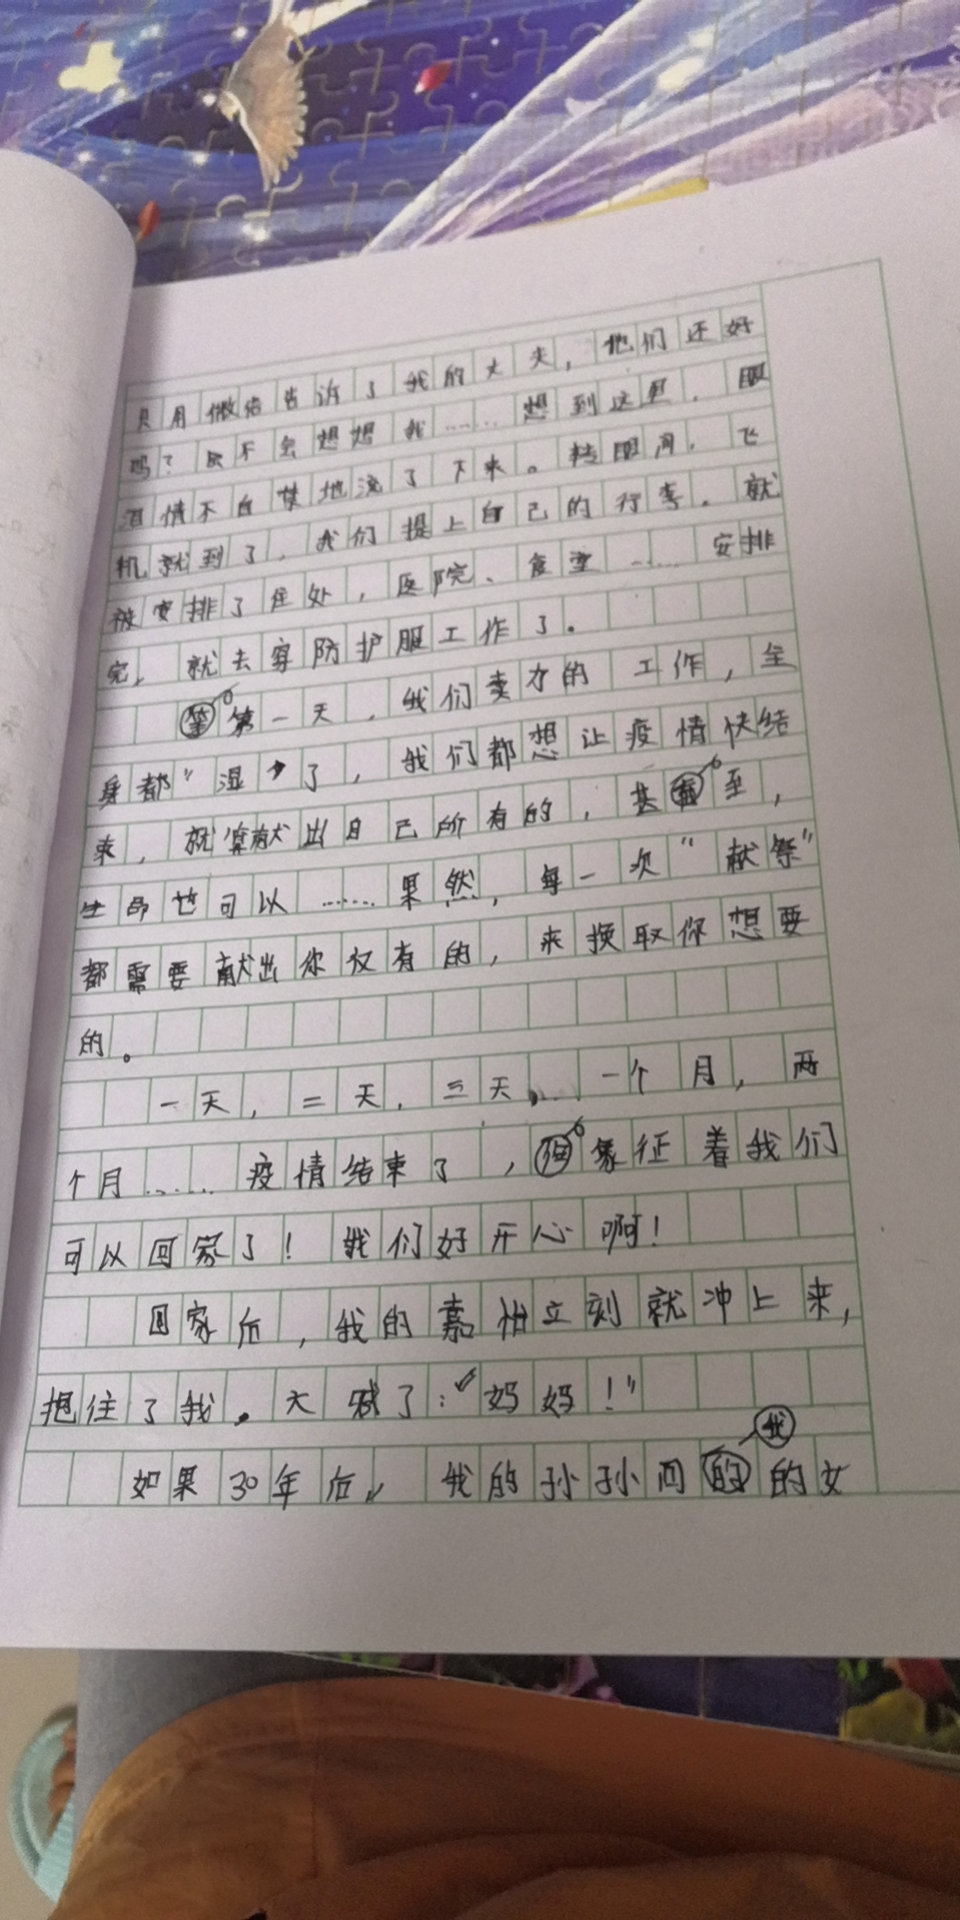 只用微信告诉了我的丈夫，他们还好
吗？会不会想想我……想到这里，眼
泪情不自禁地流了下来。转眼间，飞
机就到了，我们提上自己的行李。就
被安排了住处，医院、食堂……安排
完，就去穿防护服工作了。
第一天，我们卖力的工作，全
身都“湿”了，我们都想让疫情快结
束，就算献出自己所有的，甚至，
生命也可以……果然，每一次“献祭”
都需要献出你仅有的，来换取你想要
的。
一天，二天，三天，……一个月，两
个月……疫情结束了，象征着我们
可以回家了！我们好开心啊！
回家后，我的嘉怡立刻就冲上来，
抱住了我。大喊了：“妈妈！”
如果30年后，我的孙孙问我的女